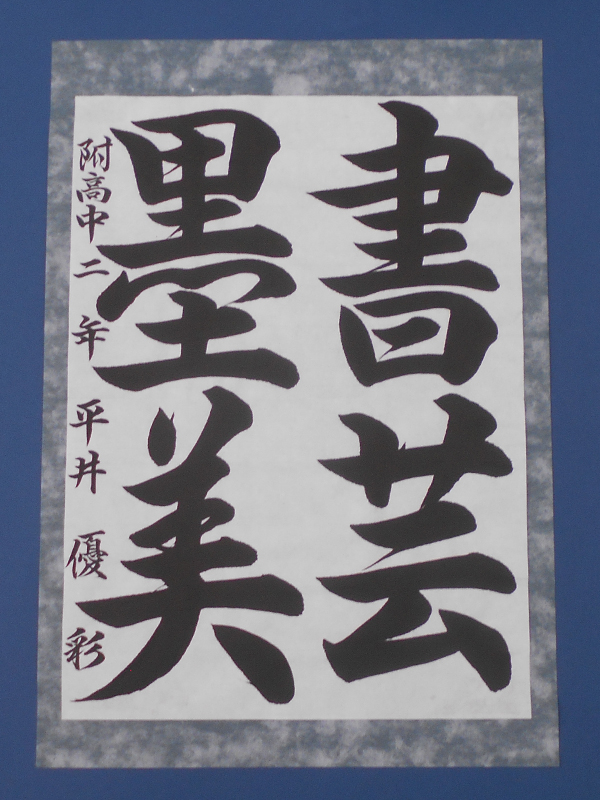 書芸
墨美
附高中二年 平井優彩